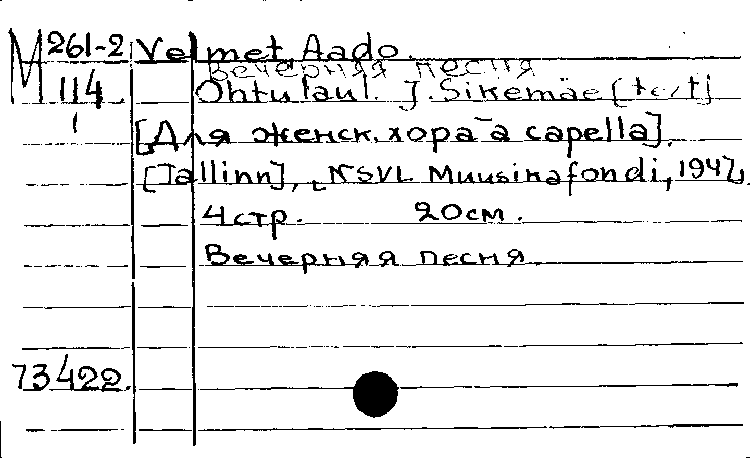 M 261-2 Velmet Aado.
Вечерняя песня
114 Õhtulaul. J. Sikemäe [text]
1 [Для женск. хора a capella].
[Tallinn], NSVL Muusikafondi, 1947.
4 стр. 20 см.
Вечерняя песня
73422.